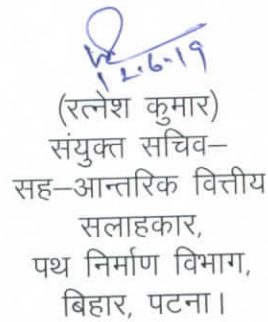 12.6.19
(रत्नेश कुमार)
संयुक्त सचिव–
सह–आन्तरिक वित्तीय
सलाहकार,
पथ निर्माण विभाग,
बिहार, पटना।